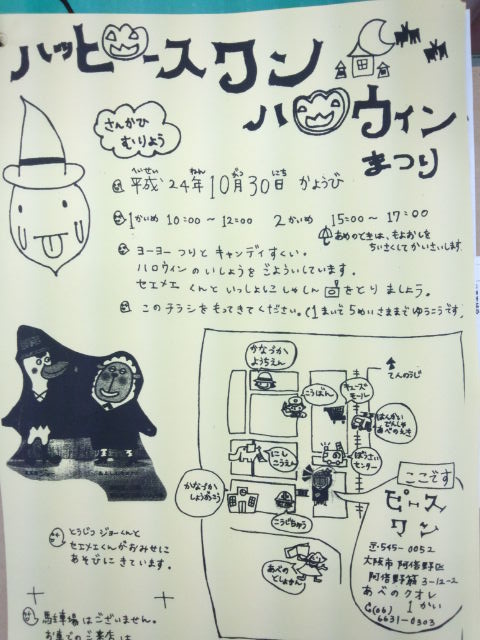 ハッピースワン
ハロウィン
まつり
さんかひ
むりょう
へいせい ねん がつ にち
平成 24年 10月 30日 かようび
1かいめ 10:00 ～ 12:00 2かいめ 15:00 ～ 17:00
あめのときは、もよおしを
ちいさくしてかいさいします
ヨーヨー つりと キャンディすくい。
ハロウィンのいしょうをごよういしています。
セエメエ くんと いっしょに しゃしん をとり ましょう。
このチラシをもってきてください。(1まいで5めいさままでゆうこうです)
かなづか
ようちえん
てんのうじ
こうばん
キューズ
モール
はんかい
でんしゃ
あべのえき
にし
こうえん
ぼうさい
センター
かなづか
しょうがっこう
こうじちゅう
あべの
としょかん
ここです
ピース
ワン
〒545-0052
大阪市 阿倍野区
阿倍野筋 3-12-2
あべのクオレ
1かい
(06)
6631-0303
とうじつ ジョーくんと
セエメエくんがおみせに
あそびにきています。
駐車場はございません。
お車でのご来店は